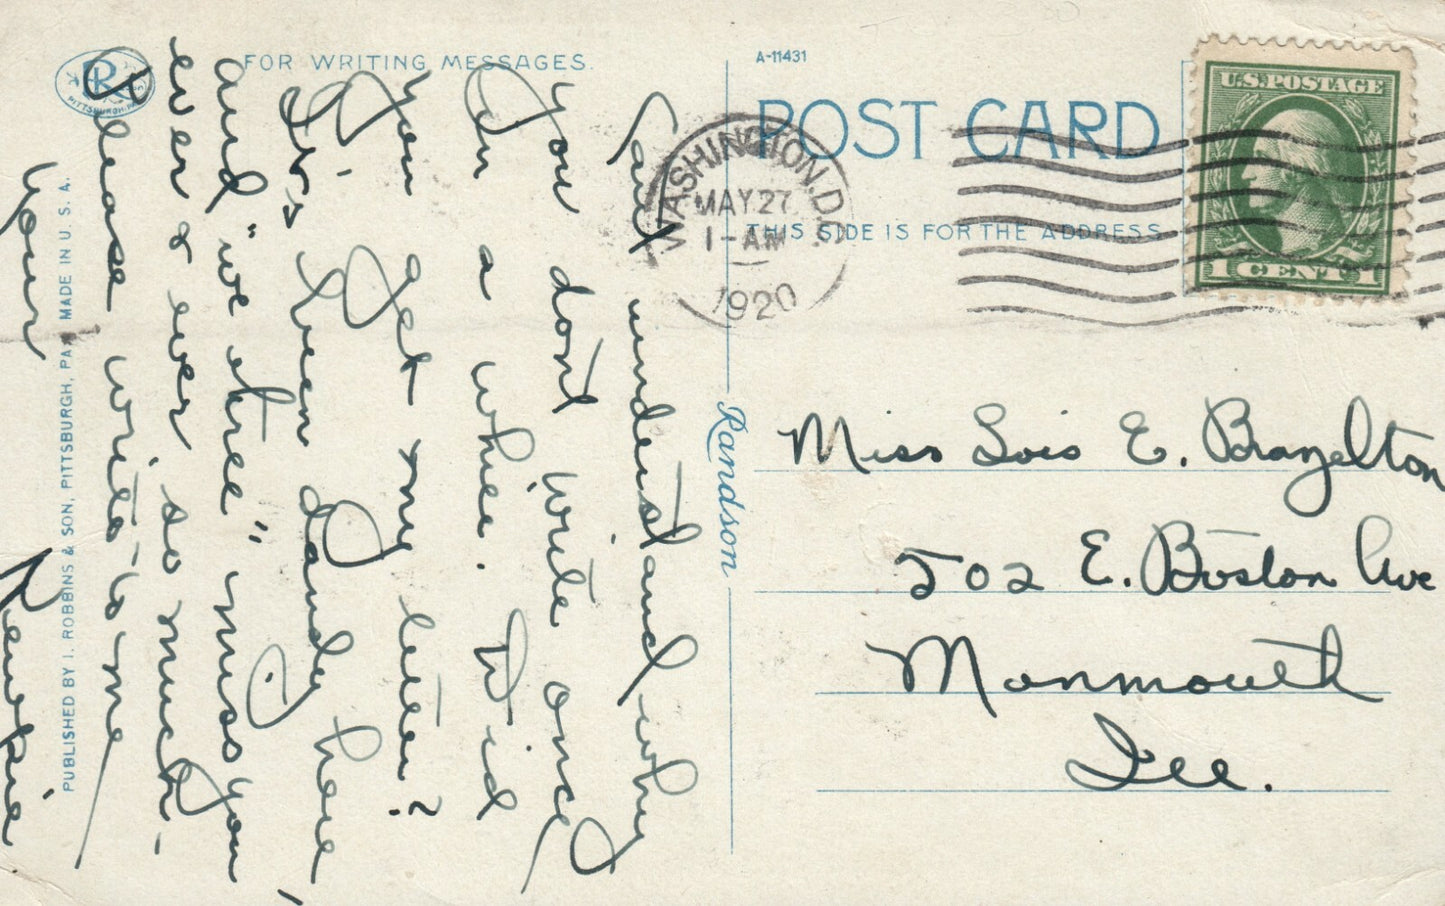 FOR WRITING MESSAGES.
A-11431
POST CARD
THIS SIDE IS FOR THE ADDRESS
U.S. POSTAGE
1 CENT 1
WASHINGTON, D.C.
MAY 27
1-AM
1920
R
PITTSBURGH, PA.
PUBLISHED BY I. ROBBINS & SON, PITTSBURGH, PA. MADE IN U. S. A.
Randson
Cant understand why
you dont write once
In a while. Did
you get my letter?
been dandy here
and "we three" miss you
ever & ever so much.
Please write to me
Your
Miss Lois E. Brazelton
502 E. Boston Ave
Monmouth
Ill.